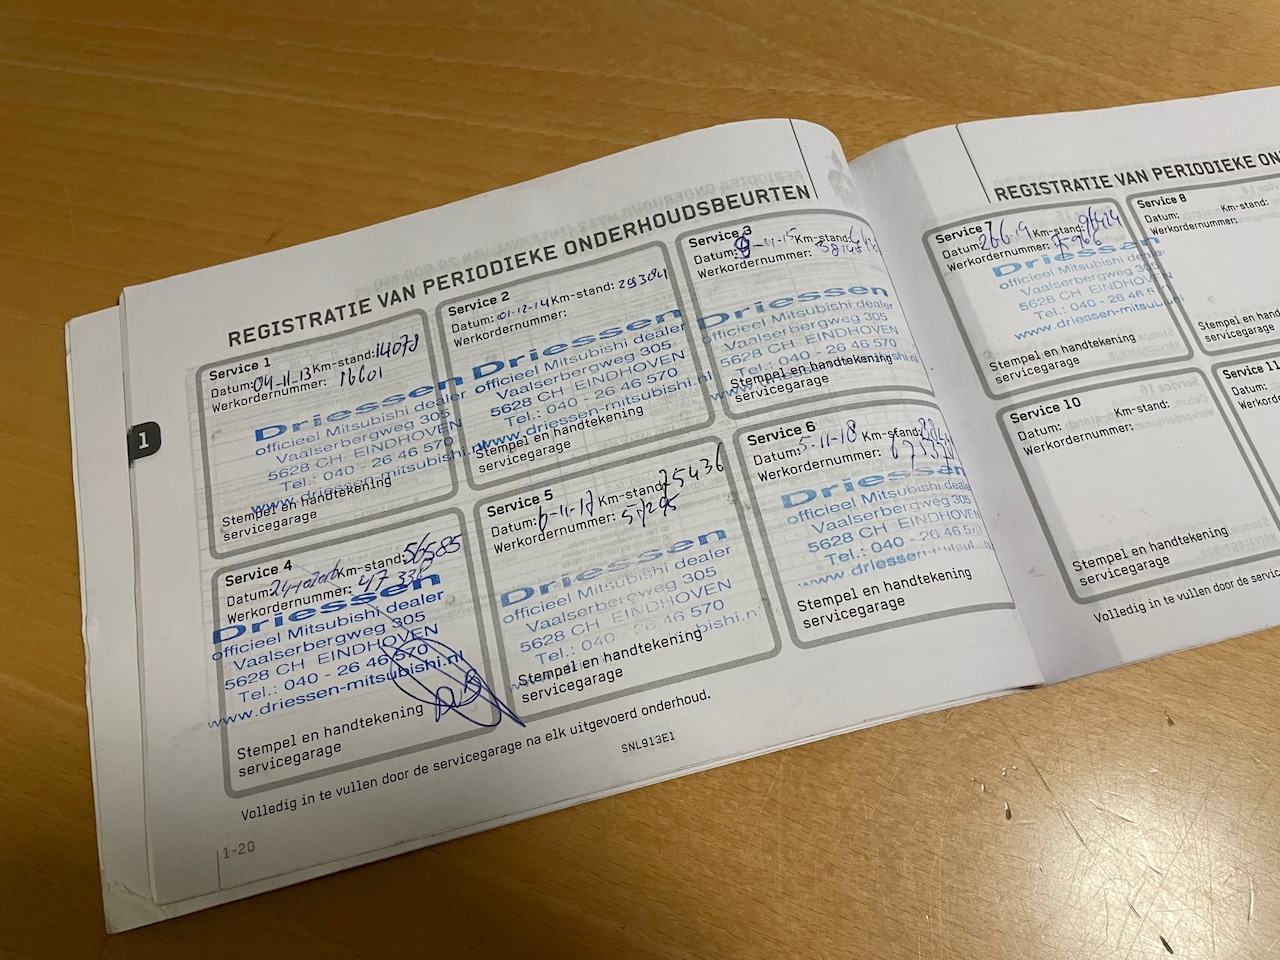 REGISTRATIE VAN PERIODIEKE ONDERHOUDSBEURTEN
Service 1
Datum: 04-11-13 Km-stand: 14078
Werkordernummer: 16601
Driessen
officieel Mitsubishi dealer
Vaalserbergweg 305
5628 CH EINDHOVEN
Tel.: 040 - 26 46 570
www.driessen-mitsubishi.nl
Stempel en handtekening
servicegarage
Service 2
Datum: 01-12-14 Km-stand:
Werkordernummer:
Driessen
officieel Mitsubishi dealer
Vaalserbergweg 305
5628 CH EINDHOVEN
Tel.: 040 - 26 46 570
www.driessen-mitsubishi.nl
Stempel en handtekening
servicegarage
Service 3
Datum: -11-15 Km-stand:
Werkordernummer:
Driessen
officieel Mitsubishi dealer
Vaalserbergweg 305
5628 CH EINDHOVEN
Tel.: 040 - 26 46 570
Stempel en handtekening
servicegarage
Service 4
Datum: Km-stand: 56585
Werkordernummer:
Driessen
officieel Mitsubishi dealer
Vaalserbergweg 305
5628 CH EINDHOVEN
Tel.: 040 - 26 46 570
www.driessen-mitsubishi.nl
Stempel en handtekening
servicegarage
Service 5
Datum: 6-11-17 Km-stand: 75436
Werkordernummer: 57295
Driessen
officieel Mitsubishi dealer
Vaalserbergweg 305
5628 CH EINDHOVEN
Tel.: 040 - 26 46 570
Stempel en handtekening
servicegarage
Service 6
Datum: 5-11-18 Km-stand:
Werkordernummer:
Driessen
officieel Mitsubishi dealer
Vaalserbergweg 305
5628 CH EINDHOVEN
Tel.: 040 - 26 46 570
Stempel en handtekening
servicegarage
Volledig in te vullen door de servicegarage na elk uitgevoerd onderhoud.
SNL913E1
1-20
1
REGISTRATIE VAN PERIODIEKE
Service 7
Datum: Km-stand:
Werkordernummer:
Driessen
officieel Mitsubishi dealer
Vaalserbergweg 305
5628 CH EINDHOVEN
Tel.: 040 - 26 46
www.driessen-mitsubishi
Stempel en handtekening
servicegarage
Service 8
Datum: Km-stand:
Werkordernummer:
Stempel en
servicegarage
Service 10
Datum: Km-stand:
Werkordernummer:
Stempel en handtekening
servicegarage
Service 11
Datum:
Volledig in te vullen door de